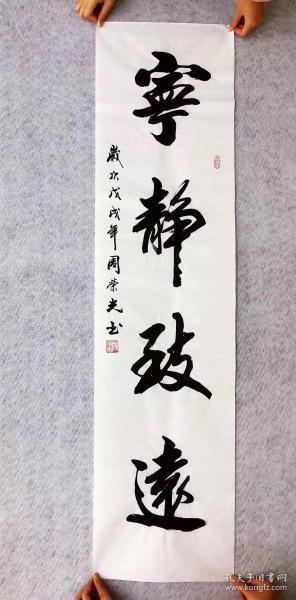 寧靜致遠
歲次戊戌年周榮光书
孔夫子旧书网
www.kongfz.com